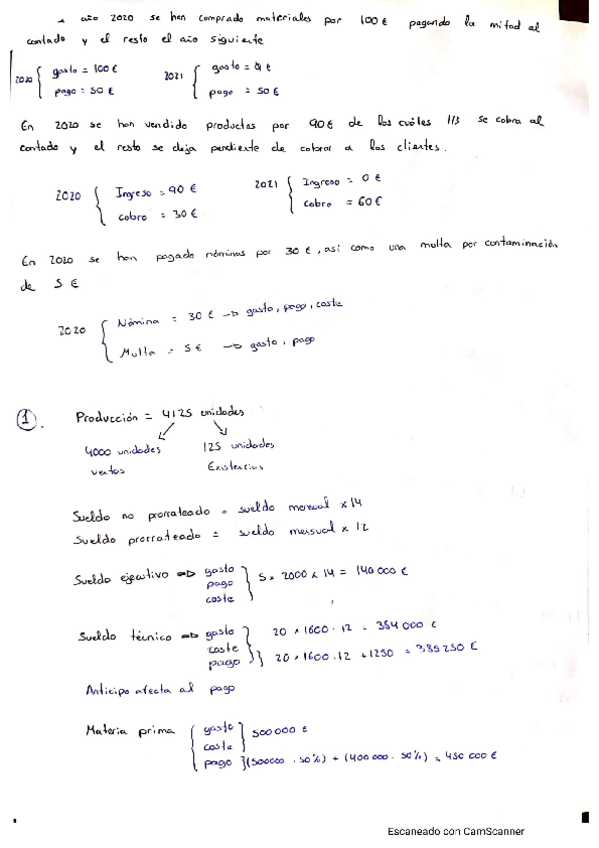 año 2020 se han comprado materiales por 100 € pagando la mitad al
contado y el resto el año siguiente
2020 { gasto = 100 € 2021 { gasto = 0 €
pago = 50 € pago = 50 €
En 2020 se han vendido productos por 90€ de los cuáles 1/3 se cobra al
contado y el resto se deja pendiente de cobrar a los clientes.
2020 { Ingreso = 90 € 2021 { Ingreso = 0 €
cobro = 30 € cobro = 60 €
En 2020 se han pagado nóminas por 30 €, así como una multa por contaminación
de 5 €
2020 { Nómina = 30 € → gasto, pago, coste
Multa = 5 € → gasto, pago
1. Producción = 4125 unidades
4000 unidades 125 unidades
ventas Existencias
Sueldo no prorrateado = sueldo mensual x 14
Sueldo prorrateado = sueldo mensual x 12
Sueldo ejecutivo ⇒ gasto
pago } 5 x 2000 x 14 = 140 000 €
coste
Sueldo técnico ⇒ gasto } 20 · 1600 · 12 = 384 000 €
coste
pago }} 20 · 1600 · 12 + 1250 = 385 250 €
Anticipo afecta al pago
Materia prima { gasto } 500 000 €
coste
pago } (500000 · 50%) + (400 000 · 50%) = 450 000 €
Escaneado con CamScanner